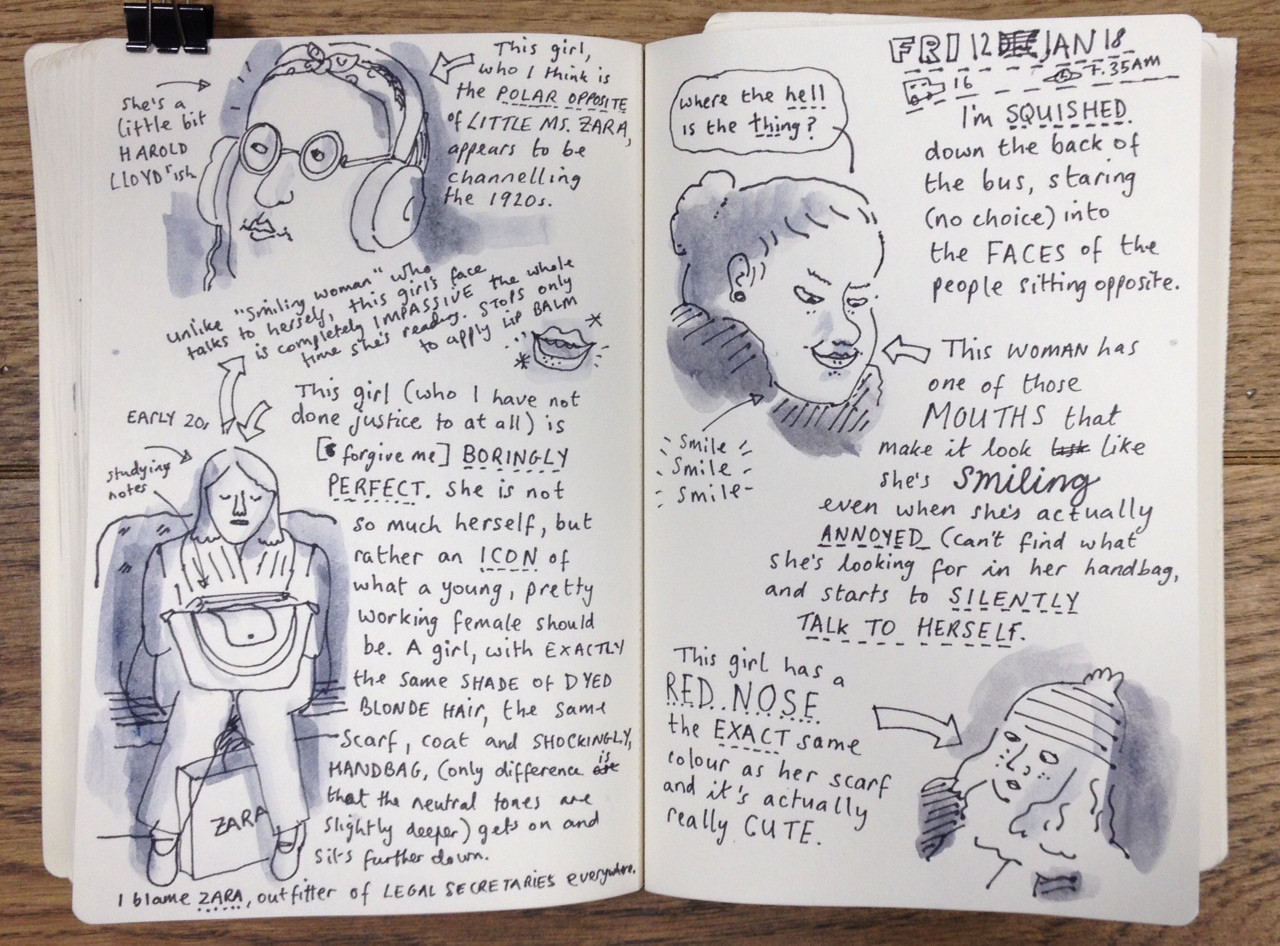 She's a
little bit
HAROLD
LLOYD'ish
This girl,
who I think is
the POLAR OPPOSITE
of LITTLE MS. ZARA,
appears to be
channelling
the 1920s.
unlike "Smiling woman" who
talks to herself, this girl's face
is completely IMPASSIVE the whole
time she's reading. STOPS only
to apply LIP BALM
EARLY 20s
studying
notes
This girl (who I have not
done justice to at all) is
[forgive me] BORINGLY
PERFECT. She is not
so much herself, but
rather an ICON of
what a young, pretty
working female should
be. A girl, with EXACTLY
the same SHADE OF DYED
BLONDE HAIR, the same
Scarf, coat and SHOCKINGLY,
HANDBAG, (only difference is
that the neutral tones are
slightly deeper) gets on and
sits further down.
ZARA
I blame ZARA, outfitter of LEGAL SECRETARIES everywhere.
FRI 12 JAN 18
16 7.35AM
where the hell
is the thing?
I'm SQUISHED
down the back of
the bus, staring
(no choice) into
the FACES of the
people sitting opposite.
This WOMAN has
one of those
MOUTHS that
make it look like
she's smiling
even when she's actually
ANNOYED (can't find what
she's looking for in her handbag,
and starts to SILENTLY
TALK TO HERSELF.
Smile
Smile
Smile
This girl has a
RED NOSE
the EXACT same
colour as her scarf
and it's actually
really CUTE.